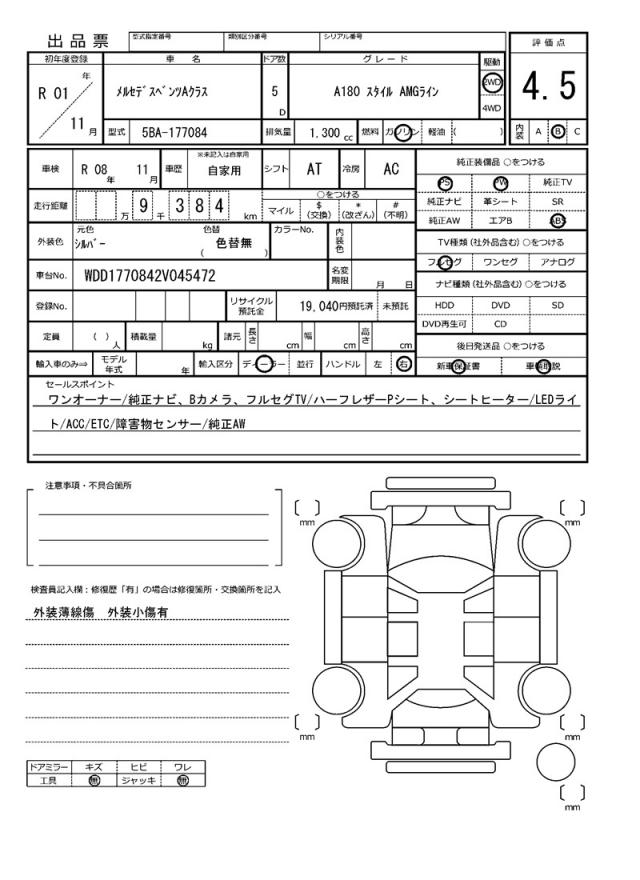 出品票
型式指定番号 類別区分番号 シリアル番号
評価点
4.5
内装 A B C
初年度登録 車名 ドア数 グレード 駆動
R 01 年 11 月
ﾒﾙｾﾃﾞｽﾍﾞﾝﾂAクラス
5 D
A180 スタイル AMGライン
2WD
4WD
型式 5BA-177084 排気量 1.300 cc 燃料 ガソリン 軽油 ( )
車検 R 08 年 11 月 車歴 ※未記入は自家用 自家用 シフト AT 冷房 AC
走行距離 万 9 千 3 8 4 km
○をつける
マイル $(交換) *(改ざん) #(不明)
外装色 元色 ｼﾙﾊﾞｰ 色替 ( 色替無 ) カラーNo. 内装色
車台No. WDD1770842V045472 名変期限 月 日
登録No. リサイクル預託金 19,040円預託済 未預託
定員 ( ) 人 積載量 kg 諸元 長さ cm 幅 cm 高さ cm
輸入車のみ⇒ モデル年式 年 輸入区分 ディーラー 並行 ハンドル 左 右
純正装備品 ○をつける
PS PW 純正TV
純正ナビ 革シート SR
純正AW エアB ABS
TV種類(社外品含む)○をつける
フルセグ ワンセグ アナログ
ナビ種類(社外品含む)○をつける
HDD DVD SD
DVD再生可 CD
後日発送品 ○をつける
新車保証書 車輌取説
セールスポイント
ワンオーナー/純正ナビ、Bカメラ、フルセグTV/ハーフレザーPシート、シートヒーター/LEDライ
ト/ACC/ETC/障害物センサー/純正AW
注意事項・不具合箇所
検査員記入欄：修復歴「有」の場合は修復箇所・交換箇所を記入
外装薄線傷　外装小傷有
ドアミラー キズ ヒビ ワレ
工具 無 ジャッキ 無
mm
mm
mm
mm
mm